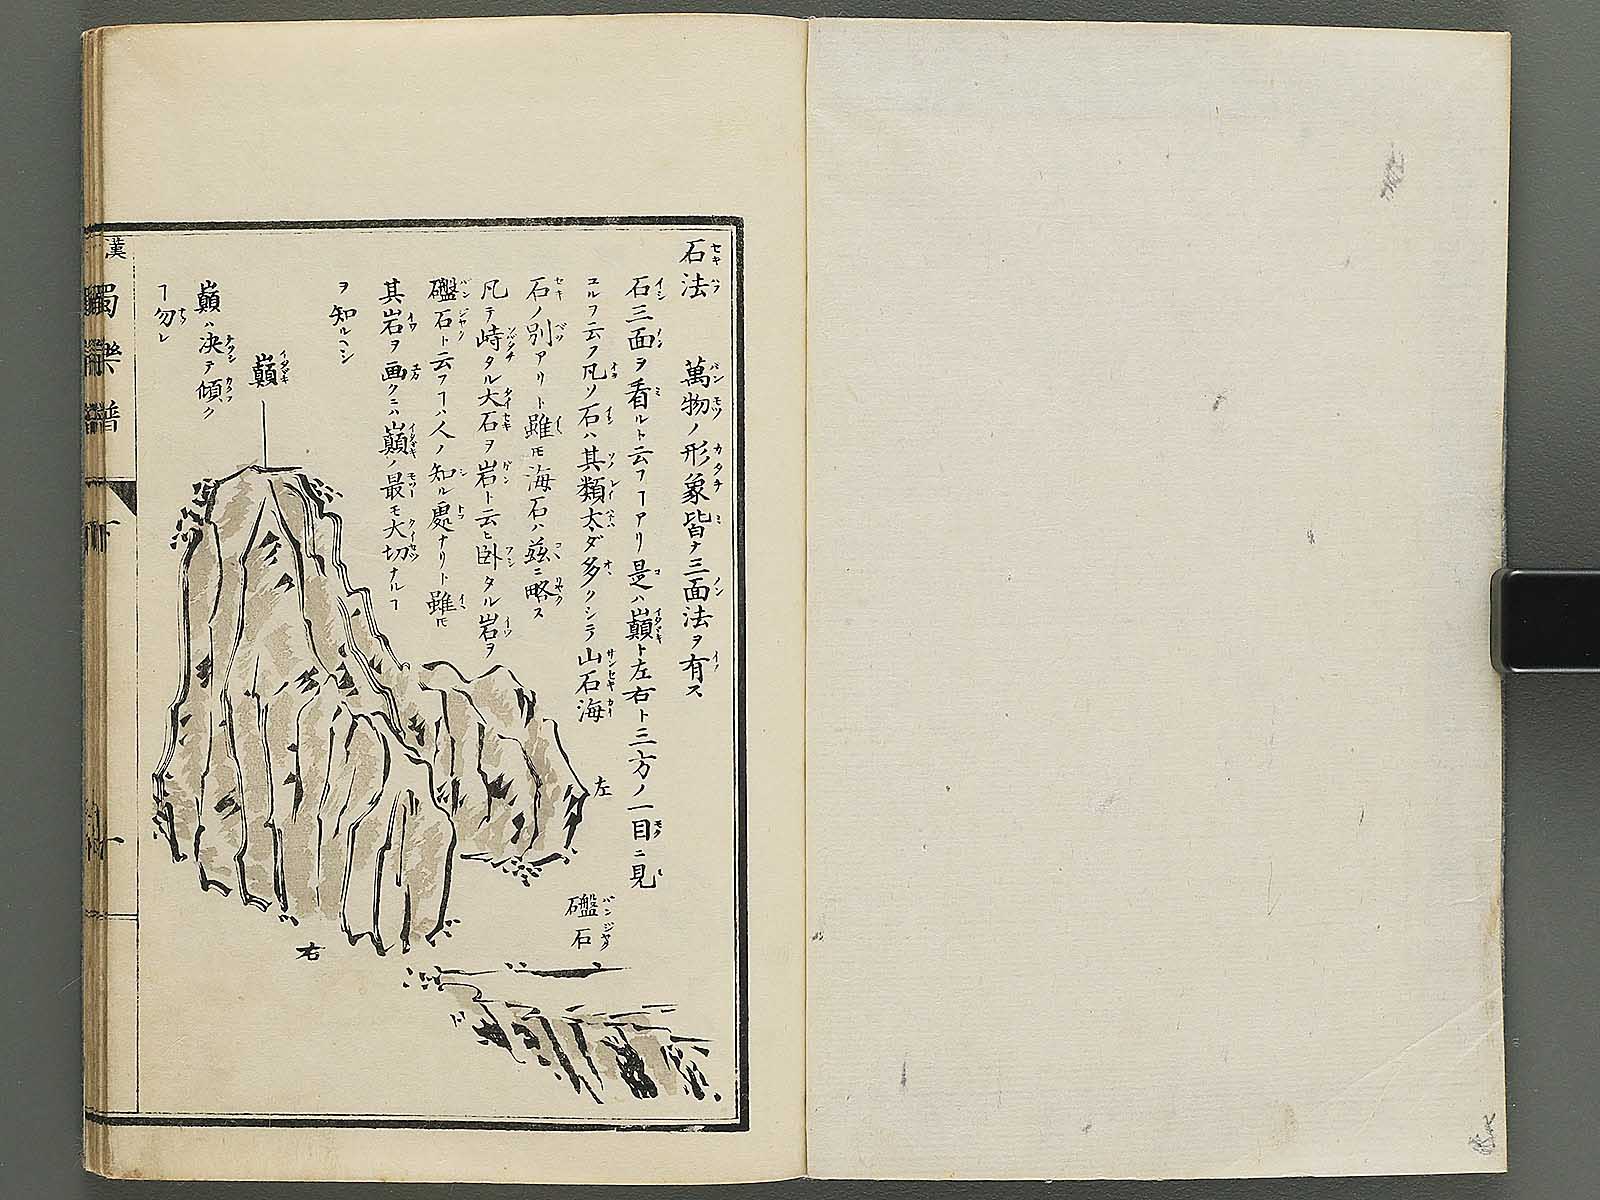 石法　萬物ノ形象皆ナ三面法ヲ有ス
石三面ヲ看ルト云フヿアリ是ハ巓ト左右ト三方ノ一目ニ見
ユルフ云フ凡ソ石ハ其類太ダ多クシテ山石海
石ノ別アリト雖モ海石ハ茲ニ略ス
凡テ峙タル大石ヲ岩ト云ヒ臥タル岩ヲ
礛石ト云フヿハ人ノ知ル處ナリト雖モ
其岩ヲ画クニハ巓ノ最モ大切ナルヿ
ヲ知ルヘシ
巓
巓ハ決テ傾ク
ヿ勿レ
左
右
礛石
漢
獨樂譜
下